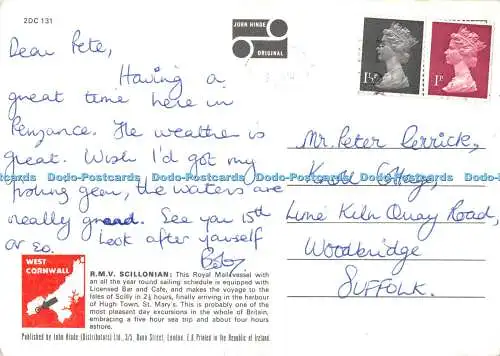 2DC 131
JOHN HINDE
ORIGINAL
1½P
1P
Dear Pete,
Having a
great time here in
Penzance. The weather is
great. Wish I'd got my
fishing gear, the waters are
really grand. See you 15th
or so. Look after yourself
Mr. Peter Perrick,
Knoll Cottage,
Lime Kiln Quay Road,
Woodbridge
SUFFOLK.
WEST
CORNWALL
R.M.V. SCILLONIAN: This Royal Mail vessel with
an all the year round sailing schedule is equipped with
Licensed Bar and Cafe, and makes the voyage to the
Isles of Scilly in 2½ hours, finally arriving in the harbour
of Hugh Town, St. Mary's. This is probably one of the
most pleasant day excursions in the whole of Britain,
embracing a five hour sea trip and about four hours
ashore.
Published by John Hinde (Distributors) Ltd., 3/5, Dunn Street, London, E.8 Printed in the Republic of Ireland.
Dodo-Postcards Dodo-Postcards Dodo-Postcards Dodo-Postcards Dodo-Postcards